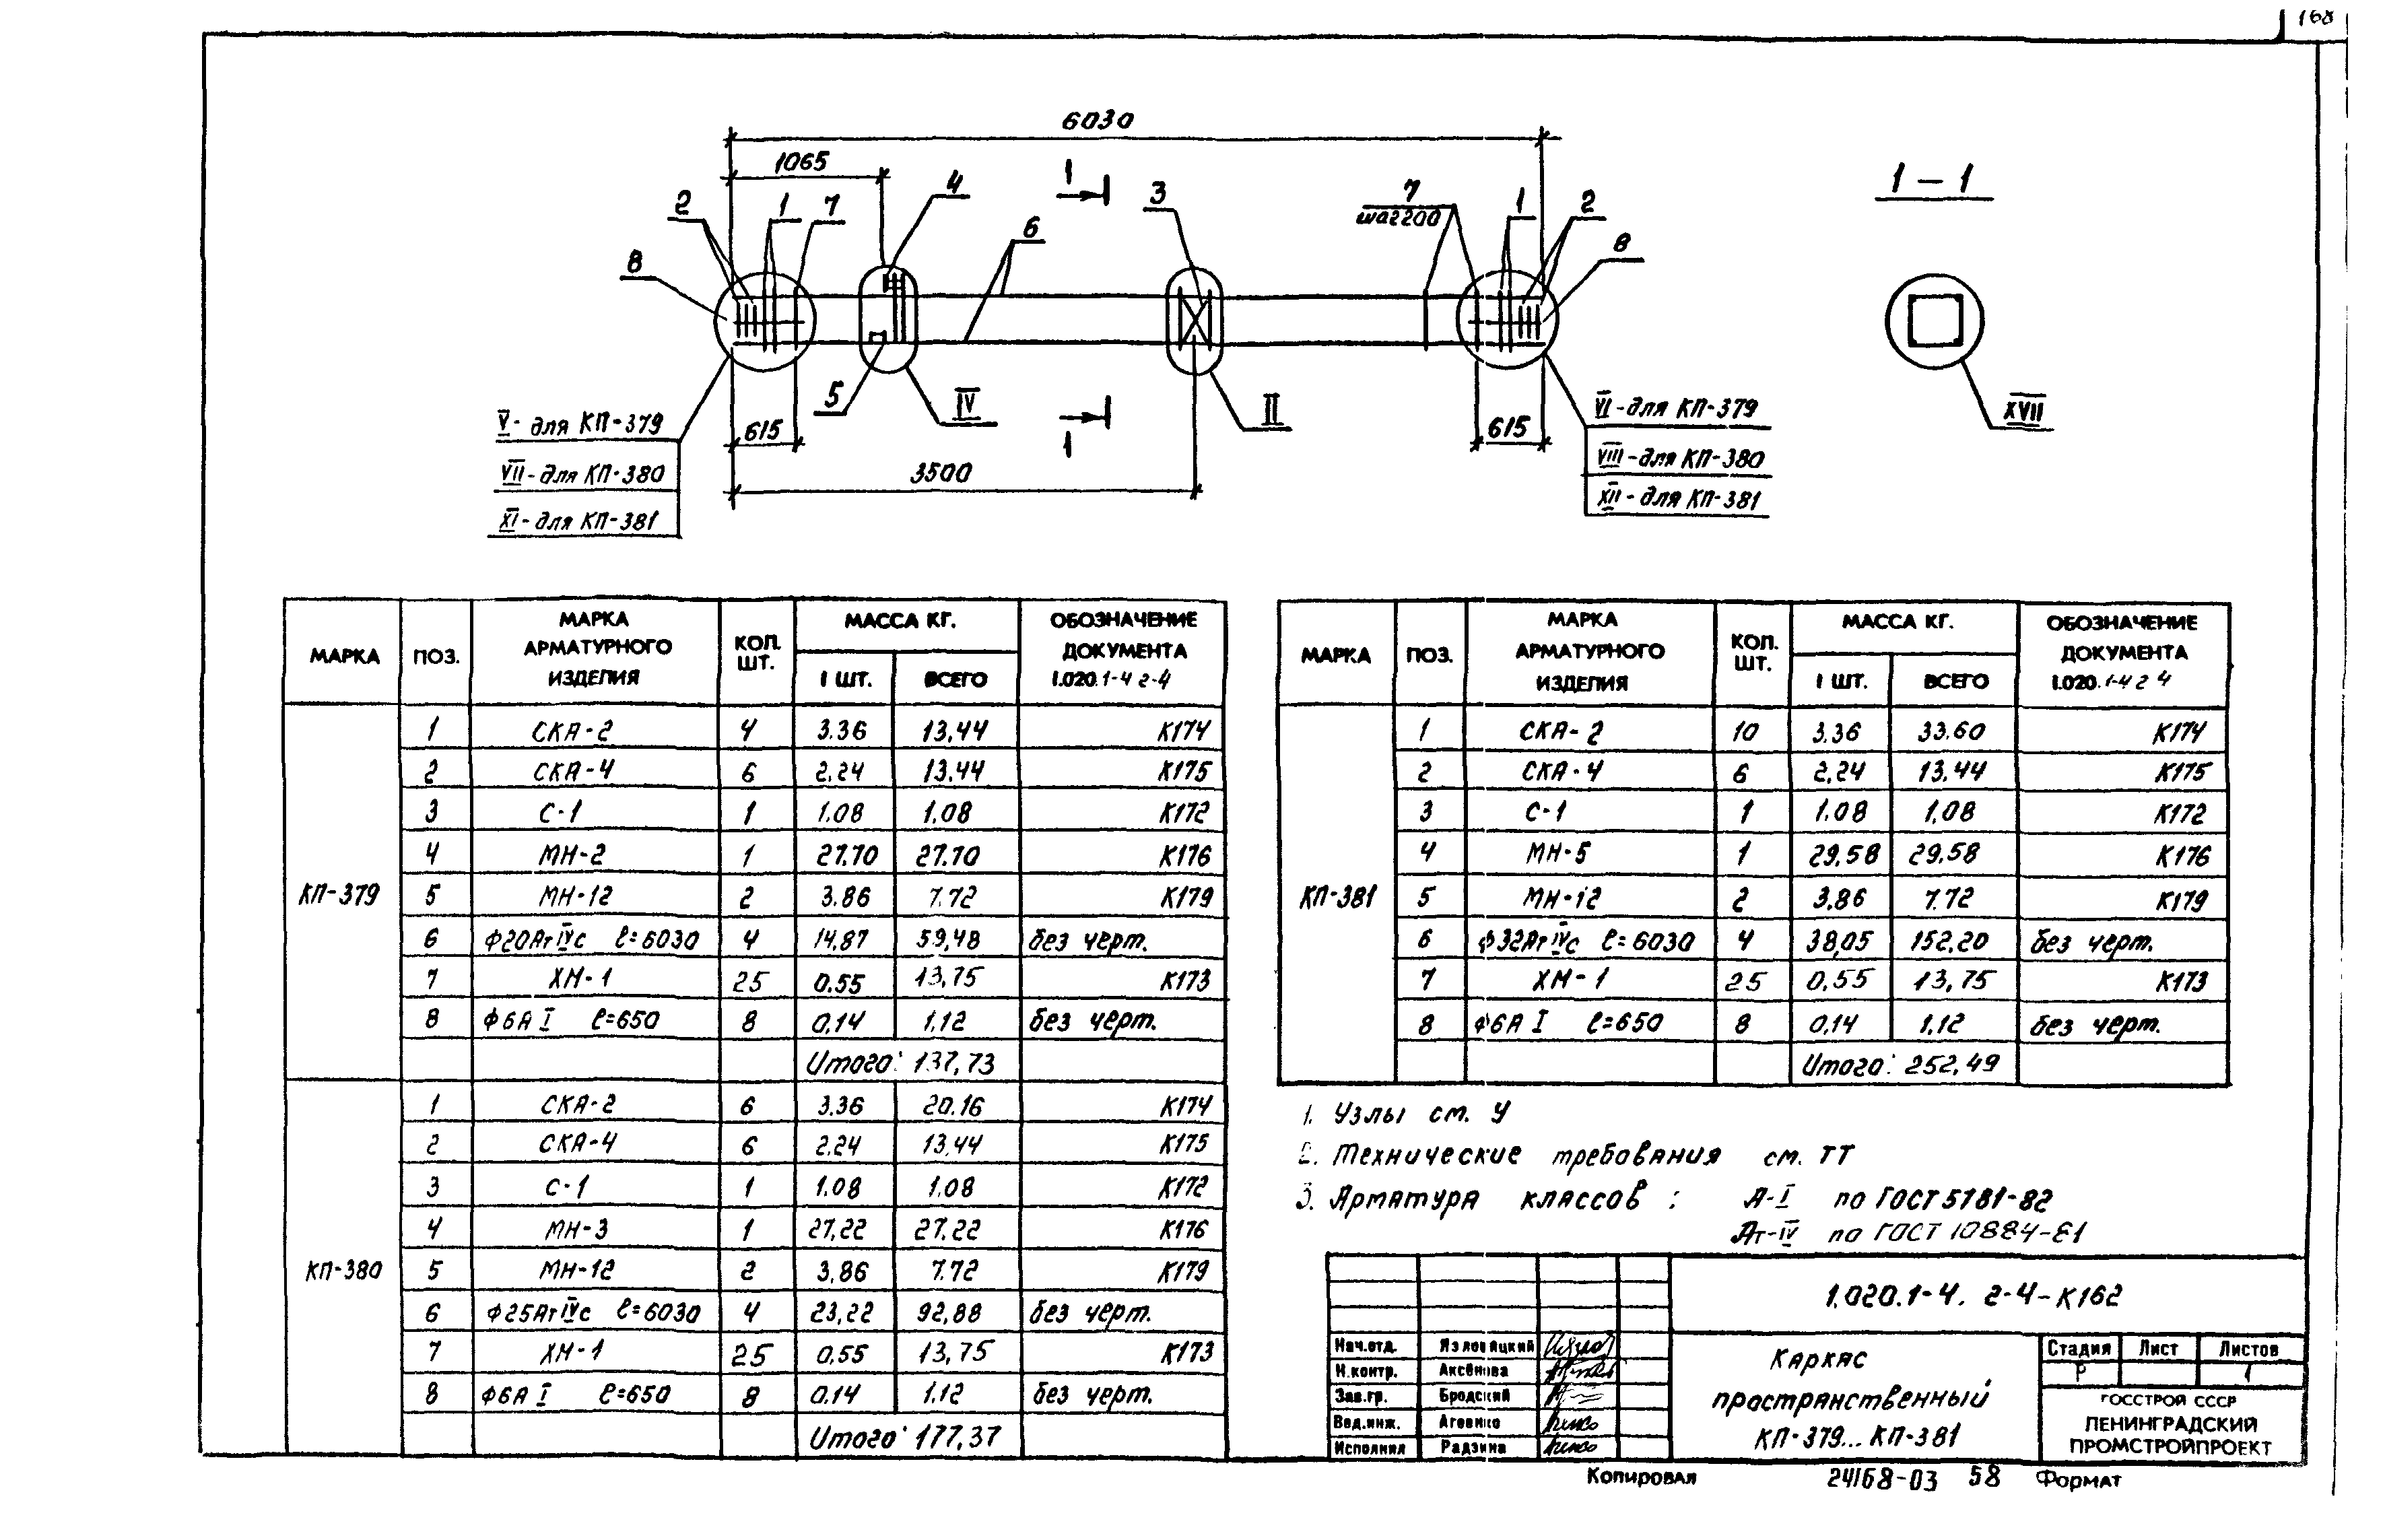 168
6030
1065
1
4
3
7
шаг200
1
2
2
1
7
6
8
8
1-1
5
IV
II
1
615
615
3500
V - для КП-379
VII - для КП-380
XI - для КП-381
VI - для КП-379
VIII - для КП-380
XII - для КП-381
XVII
МАРКА ПОЗ. МАРКА АРМАТУРНОГО ИЗДЕЛИЯ КОЛ. ШТ. МАССА КГ. 1 ШТ. ВСЕГО ОБОЗНАЧЕНИЕ ДОКУМЕНТА 1.020.1-4 2-4
КП-379
1 СКА-2 4 3.36 13,44 К174
2 СКА-4 6 2,24 13,44 К175
3 С-1 1 1.08 1,08 К172
4 МН-2 1 27.70 27.70 К176
5 МН-12 2 3.86 7.72 К179
6 ф20АтIVс ℓ=6030 4 14,87 59,48 без черт.
7 ХМ-1 25 0.55 13,75 К173
8 ф6А I ℓ=650 8 0,14 1,12 без черт.
Итого: 137,73
КП-380
1 СКА-2 6 3.36 20.16 К174
2 СКА-4 6 2.24 13.44 К175
3 С-1 1 1.08 1.08 К172
4 МН-3 1 27,22 27.22 К176
5 МН-12 2 3,86 7.72 К179
6 ф25АтIVс ℓ=6030 4 23,22 92,88 без черт.
7 ХМ-1 25 0,55 13,75 К173
8 ф6А I ℓ=650 8 0.14 1.12 без черт.
Итого: 177,37
МАРКА ПОЗ. МАРКА АРМАТУРНОГО ИЗДЕЛИЯ КОЛ. ШТ. МАССА КГ. 1 ШТ. ВСЕГО ОБОЗНАЧЕНИЕ ДОКУМЕНТА 1.020.1-4 2 4
КП-381
1 СКА-2 10 3.36 33.60 К174
2 СКА-4 6 2,24 13,44 К175
3 С-1 1 1.08 1,08 К172
4 МН-5 1 29,58 29,58 К176
5 МН-12 2 3,86 7.72 К179
6 ф32АтIVс ℓ=6030 4 38,05 152,20 без черт.
7 ХМ-1 25 0,55 13,75 К173
8 ф6А I ℓ=650 8 0,14 1,12 без черт.
Итого: 252,49
1. Узлы см. У
2. Технические требования см. ТТ
3. Арматура классов : А-I по ГОСТ 5781-82
Ат-IV по ГОСТ 10884-81
1.020.1-4. 2-4-К162
Нач.отд. Язловицкий
Н.контр. Аксёнова
Зав.гр. Бродский
Вед.инж.
Исполнил Радзина
Каркас
пространственный
КП-379... КП-381
Стадия Лист Листов
Р 1
ГОССТРОЙ СССР
ЛЕНИНГРАДСКИЙ
ПРОМСТРОЙПРОЕКТ
Копировал 24168-03 58 Формат